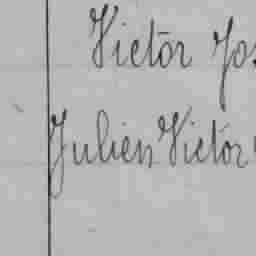 Victor Jos
Julien Victor